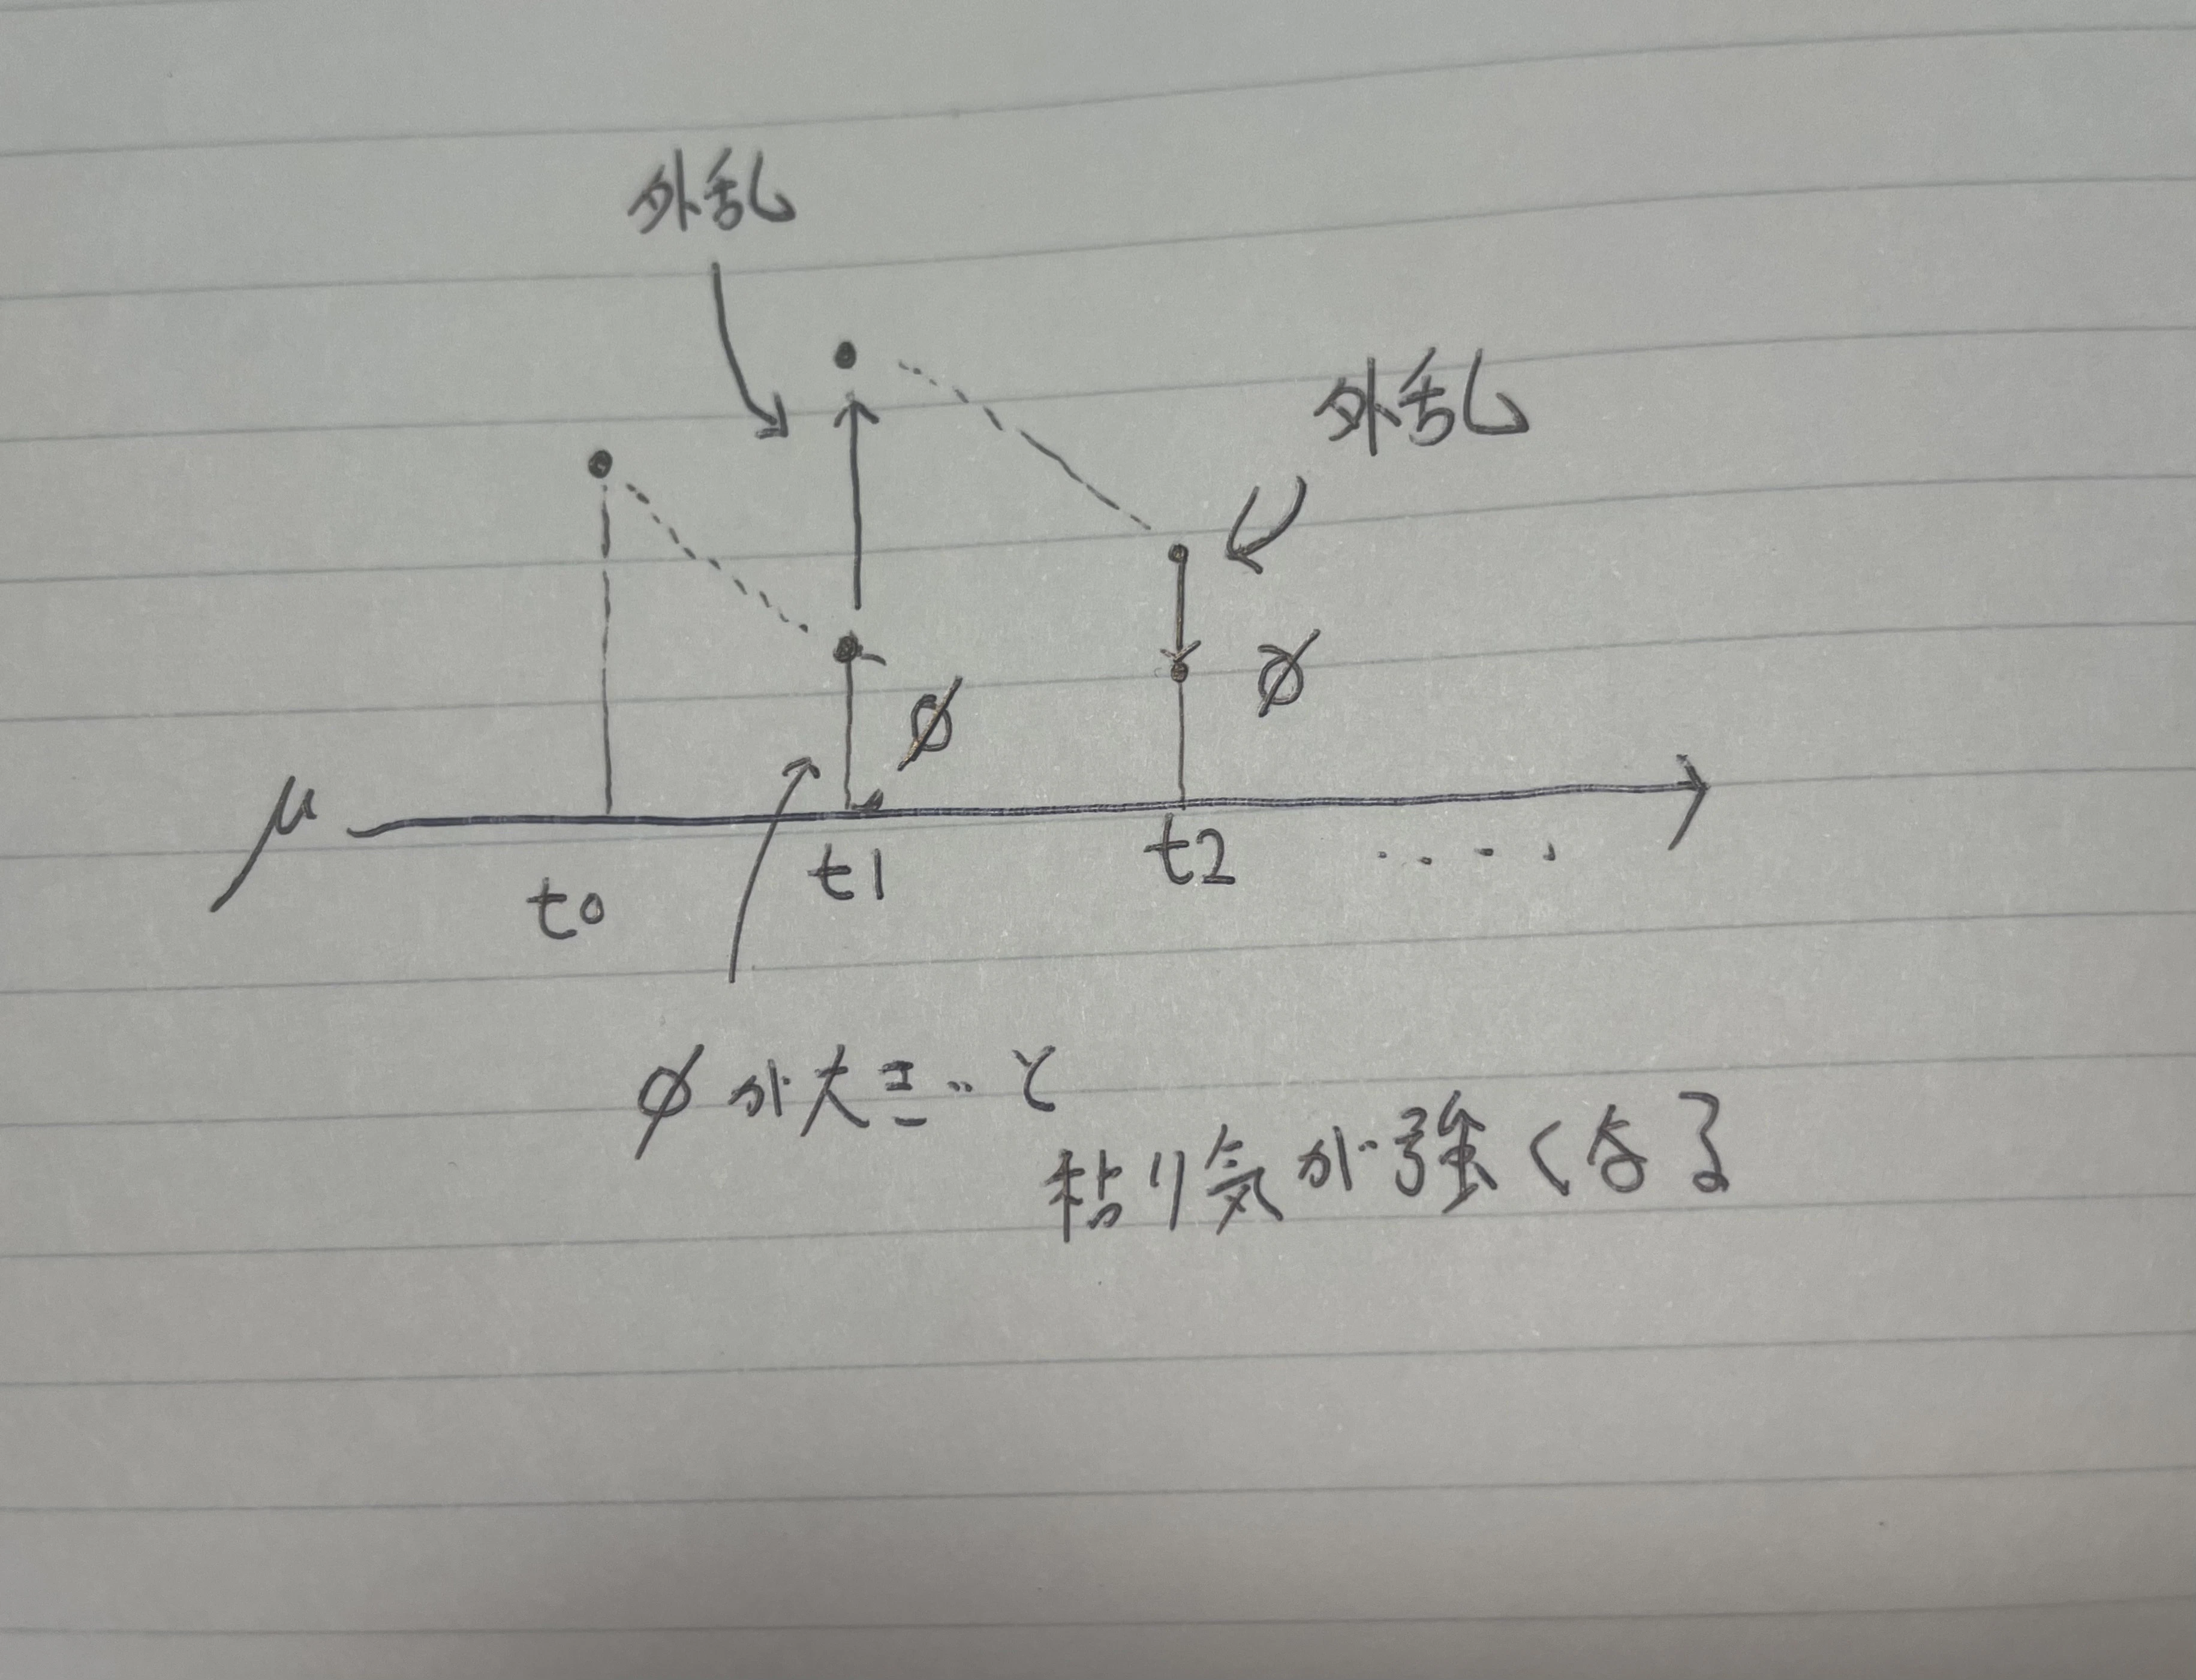 外乱
外乱
φ
φ
μ
t0
t1
t2 ....
φが大きいと
粘り気が強くなる